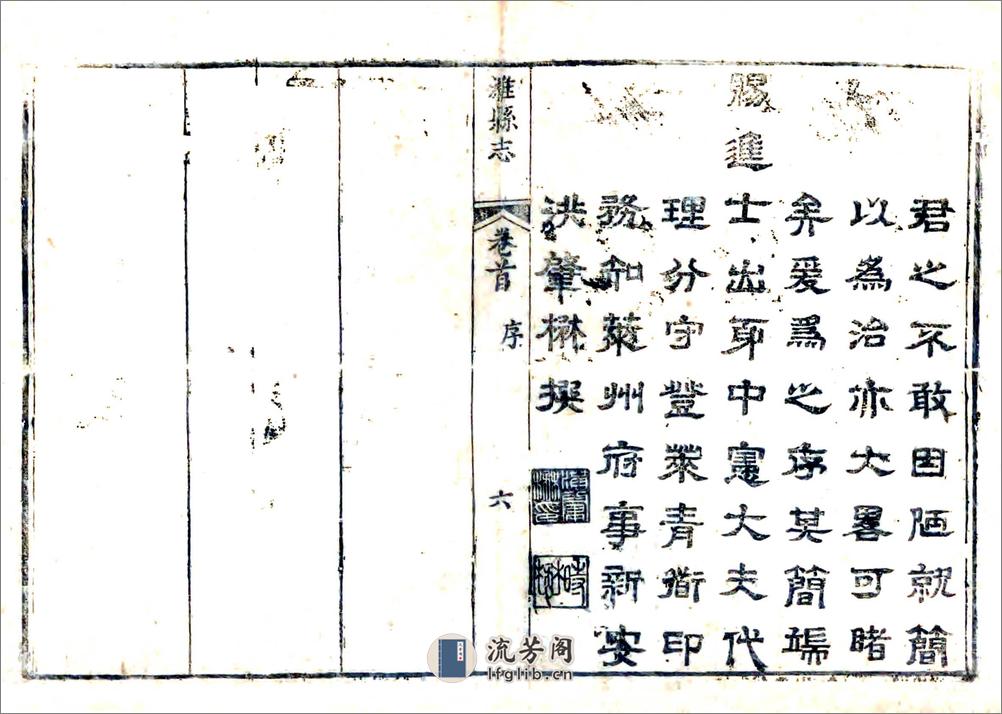 君之不敢因陋就簡
以為治亦大畧可睹
矣爰爲之序其簡端
賜進士出身中憲大夫代
理分守登萊青衜印
務知萊州府事新安
洪肇楙撰
洪肇楙印
濰縣志 卷首 序 六
流芳阁
lfglib.cn